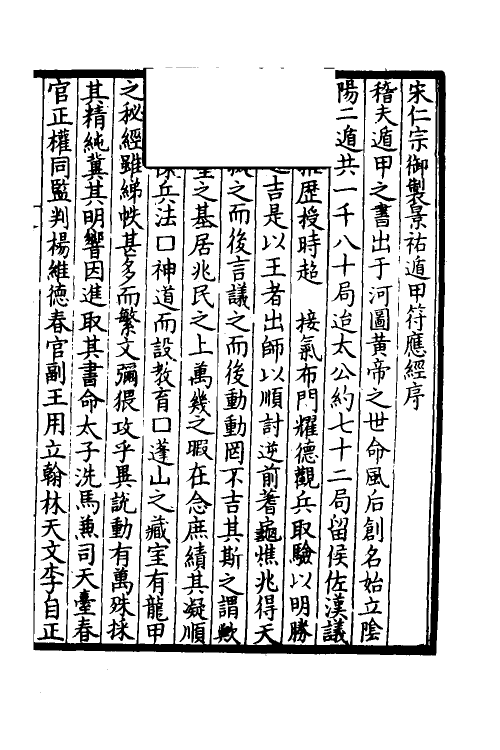 宋仁宗御製景祐遁甲符應經序
稽夫遁甲之書出于河圖黄帝之世命風后創名始立陰
陽二遁共一千八十局迨太公約七十二局留侯佐漢議
歷授時超 接氣布門耀德觀兵取驗以明勝
之吉是以王者出師以順討逆前蓍龜燋兆得天
之而後言議之而後動動罔不吉其斯之謂歟
之基居兆民之上萬幾之暇在念庶績其凝順
兵法口神道而設教育口蓬山之藏室有龍甲
之秘經雖綈帙甚多而繁文彌猥攻乎異說動有萬殊採
其精純冀其明響因進取其書命太子洗馬兼司天臺春
官正權同監判楊維德春官副王用立翰林天文李自正